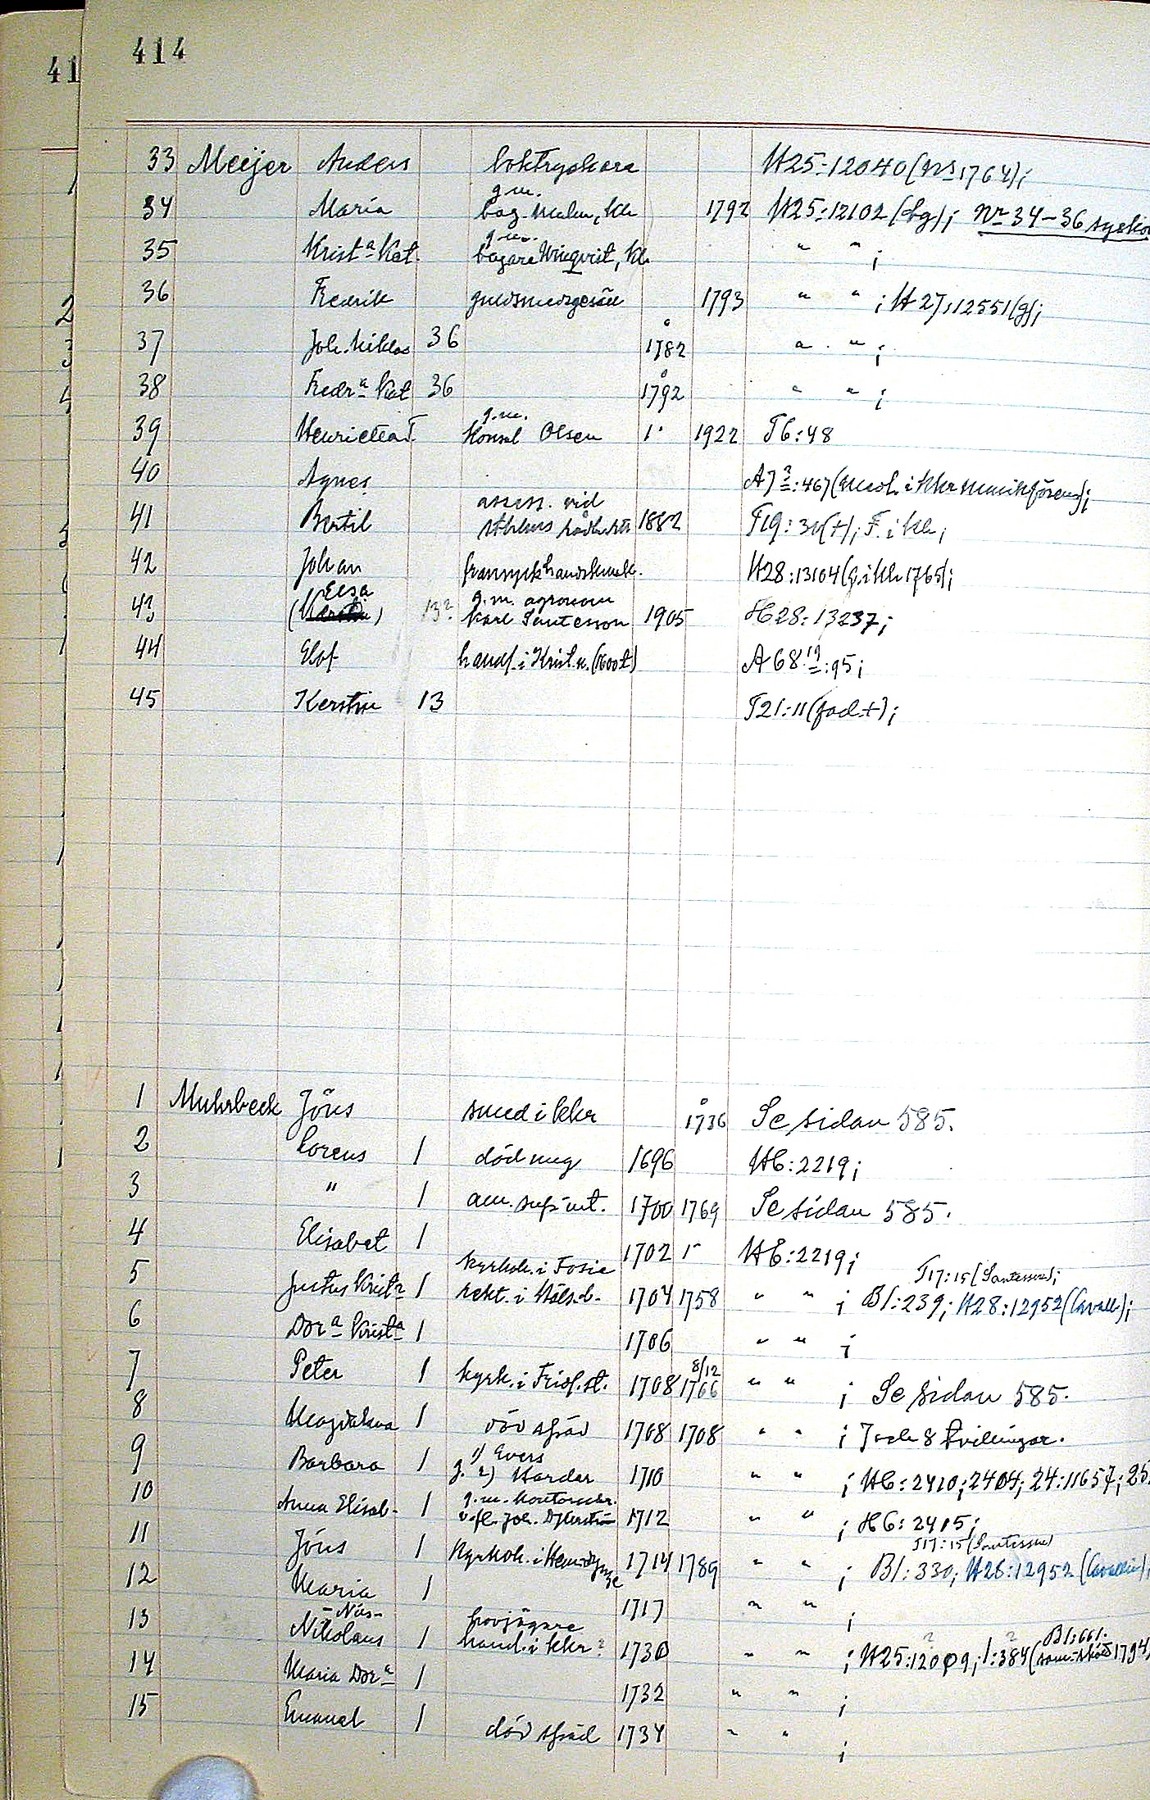 414
41
33 Meijer Anders boktryckare H25:12040 (Ns 1764);
g.m.
34 Maria bag. Malm, Kh 1792 H25:12102 (bg); Nr 34-36 syskon
g.m.
35 Krist:a Kat. bagare Winqvist, Kh. " " ;
36 Fredrik guldsmedsgesäll 1793 " " ; H27:12551 (g);
37 Joh. Niklas 36 1782 " " ;
38 Fredr:a Kat 36 1792 " " ;
g.m.
39 Henrietta T. Konsul Olsen 1' 1922 T6:48
40 Agnes A7:467 (medl. i Khr
assess. vid
41 Bertil Sthlms rådh.rätt 1882 T19:31 (+); F. i Kh;
42 Johan fransyskhandskmak. H28:13104 (g. i Kh 1765);
Elsa g.m. agronom
43 (Kerstin) 13? Karl Santesson 1905 H28:13237;
44 Elof handl. i Krist.n. (1600t) A68 19:95;
45 Kerstin 13 T21:11 (fad. +);
1 Muhrbeck Jöns smed i Khr 1736 Se sidan 585.
2 Lorens 1 död ung 1696 H6:2219;
3 " 1 am. sup-int. 1700 1769 Se sidan 585.
4 Elisabet 1 1702 1- H6:2219;
kyrkoh. i Fosie T17:15 (Santesson);
5 Justus Krist:r 1 rekt. i Hälsb. 1704 1758 " " ; Bl:239; H28:12952 (Cavall);
6 Dor:a Krist:a 1 1706 " " ;
8/12
7 Peter 1 kyrk. i Fridl.st. 1708 1766 " " ; Se sidan 585.
8 Magdalena 1 död späd 1708 1708 " " ; 7 och 8 tvillingar.
1) Evers
9 Barbara 1 g. 2) Harder 1710 " " ; H6:2410; 2404; 24:11657; 25
g.m. kontorsskr.
10 Anna Elisab. 1 v. fl. Joh. 1712 " " ; H6:2415;
T17:15 (Santesson)
11 Jöns 1 Kyrkoh. i 1714 1789 " " ; Bl:330; H28:12952 (Cavallin);
12 Maria 1 1717 " " ;
-Näs- hovjägare Bl:661.
13 Nikolaus 1 hand. i Khr? 1730 " " ; H25:12009; 1:384 ( 1794)
14 Maria Dor:a 1 1732 " " ;
15 Emanuel 1 död späd 1734 " " ;